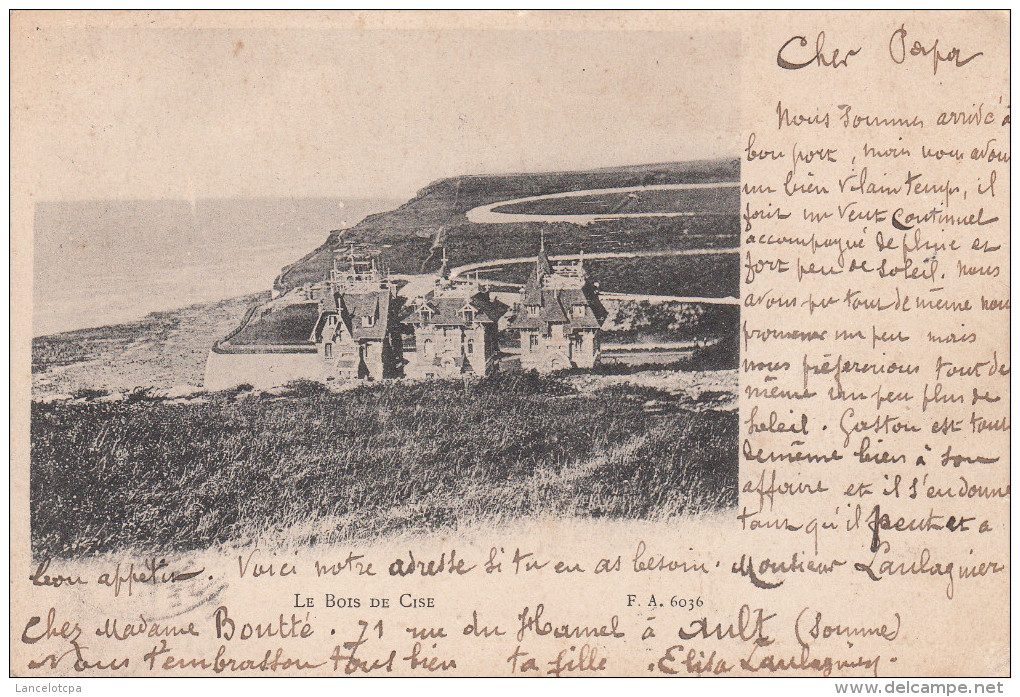 Cher Papa
Nous sommes arrivé à
bon port, mais nous avons
un bien vilain temps, il
fait un vent continuel
accompagné de pluie et
fort peu de soleil. Nous
avons pu tout de même nous
promener un peu mais
nous préfererions tout de
même un peu plus de
soleil. Gaston est tout
de même bien à son
affaire et il s'en donne
tant qu'il peut et a
bon appétit. Voici notre adresse si tu en as besoin. Monsieur Laulagnier
LE BOIS DE CISE F. A. 6036
Chez Madame Boutté. 71 rue du Hamel à Ault (Somme)
Nous t'embrasson tous bien ta fille Elisa Laulagnier.
Lancelotcpa
www.delcampe.net